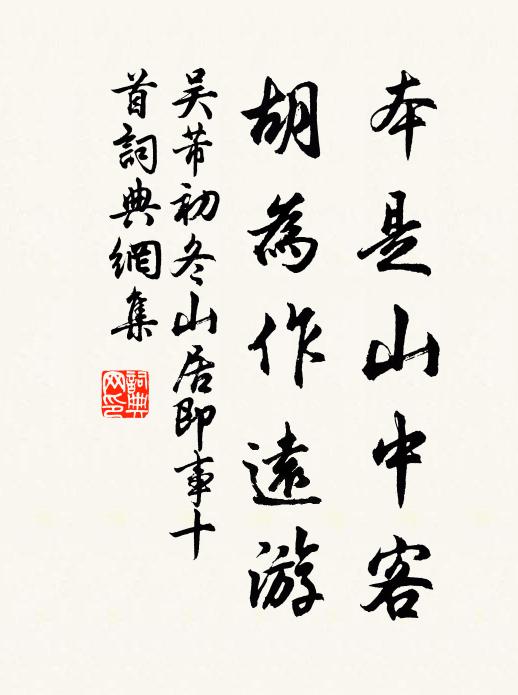 本是山中客
胡為作遠游
吴芾初冬山居即事十
首詞典網集
詞典网印